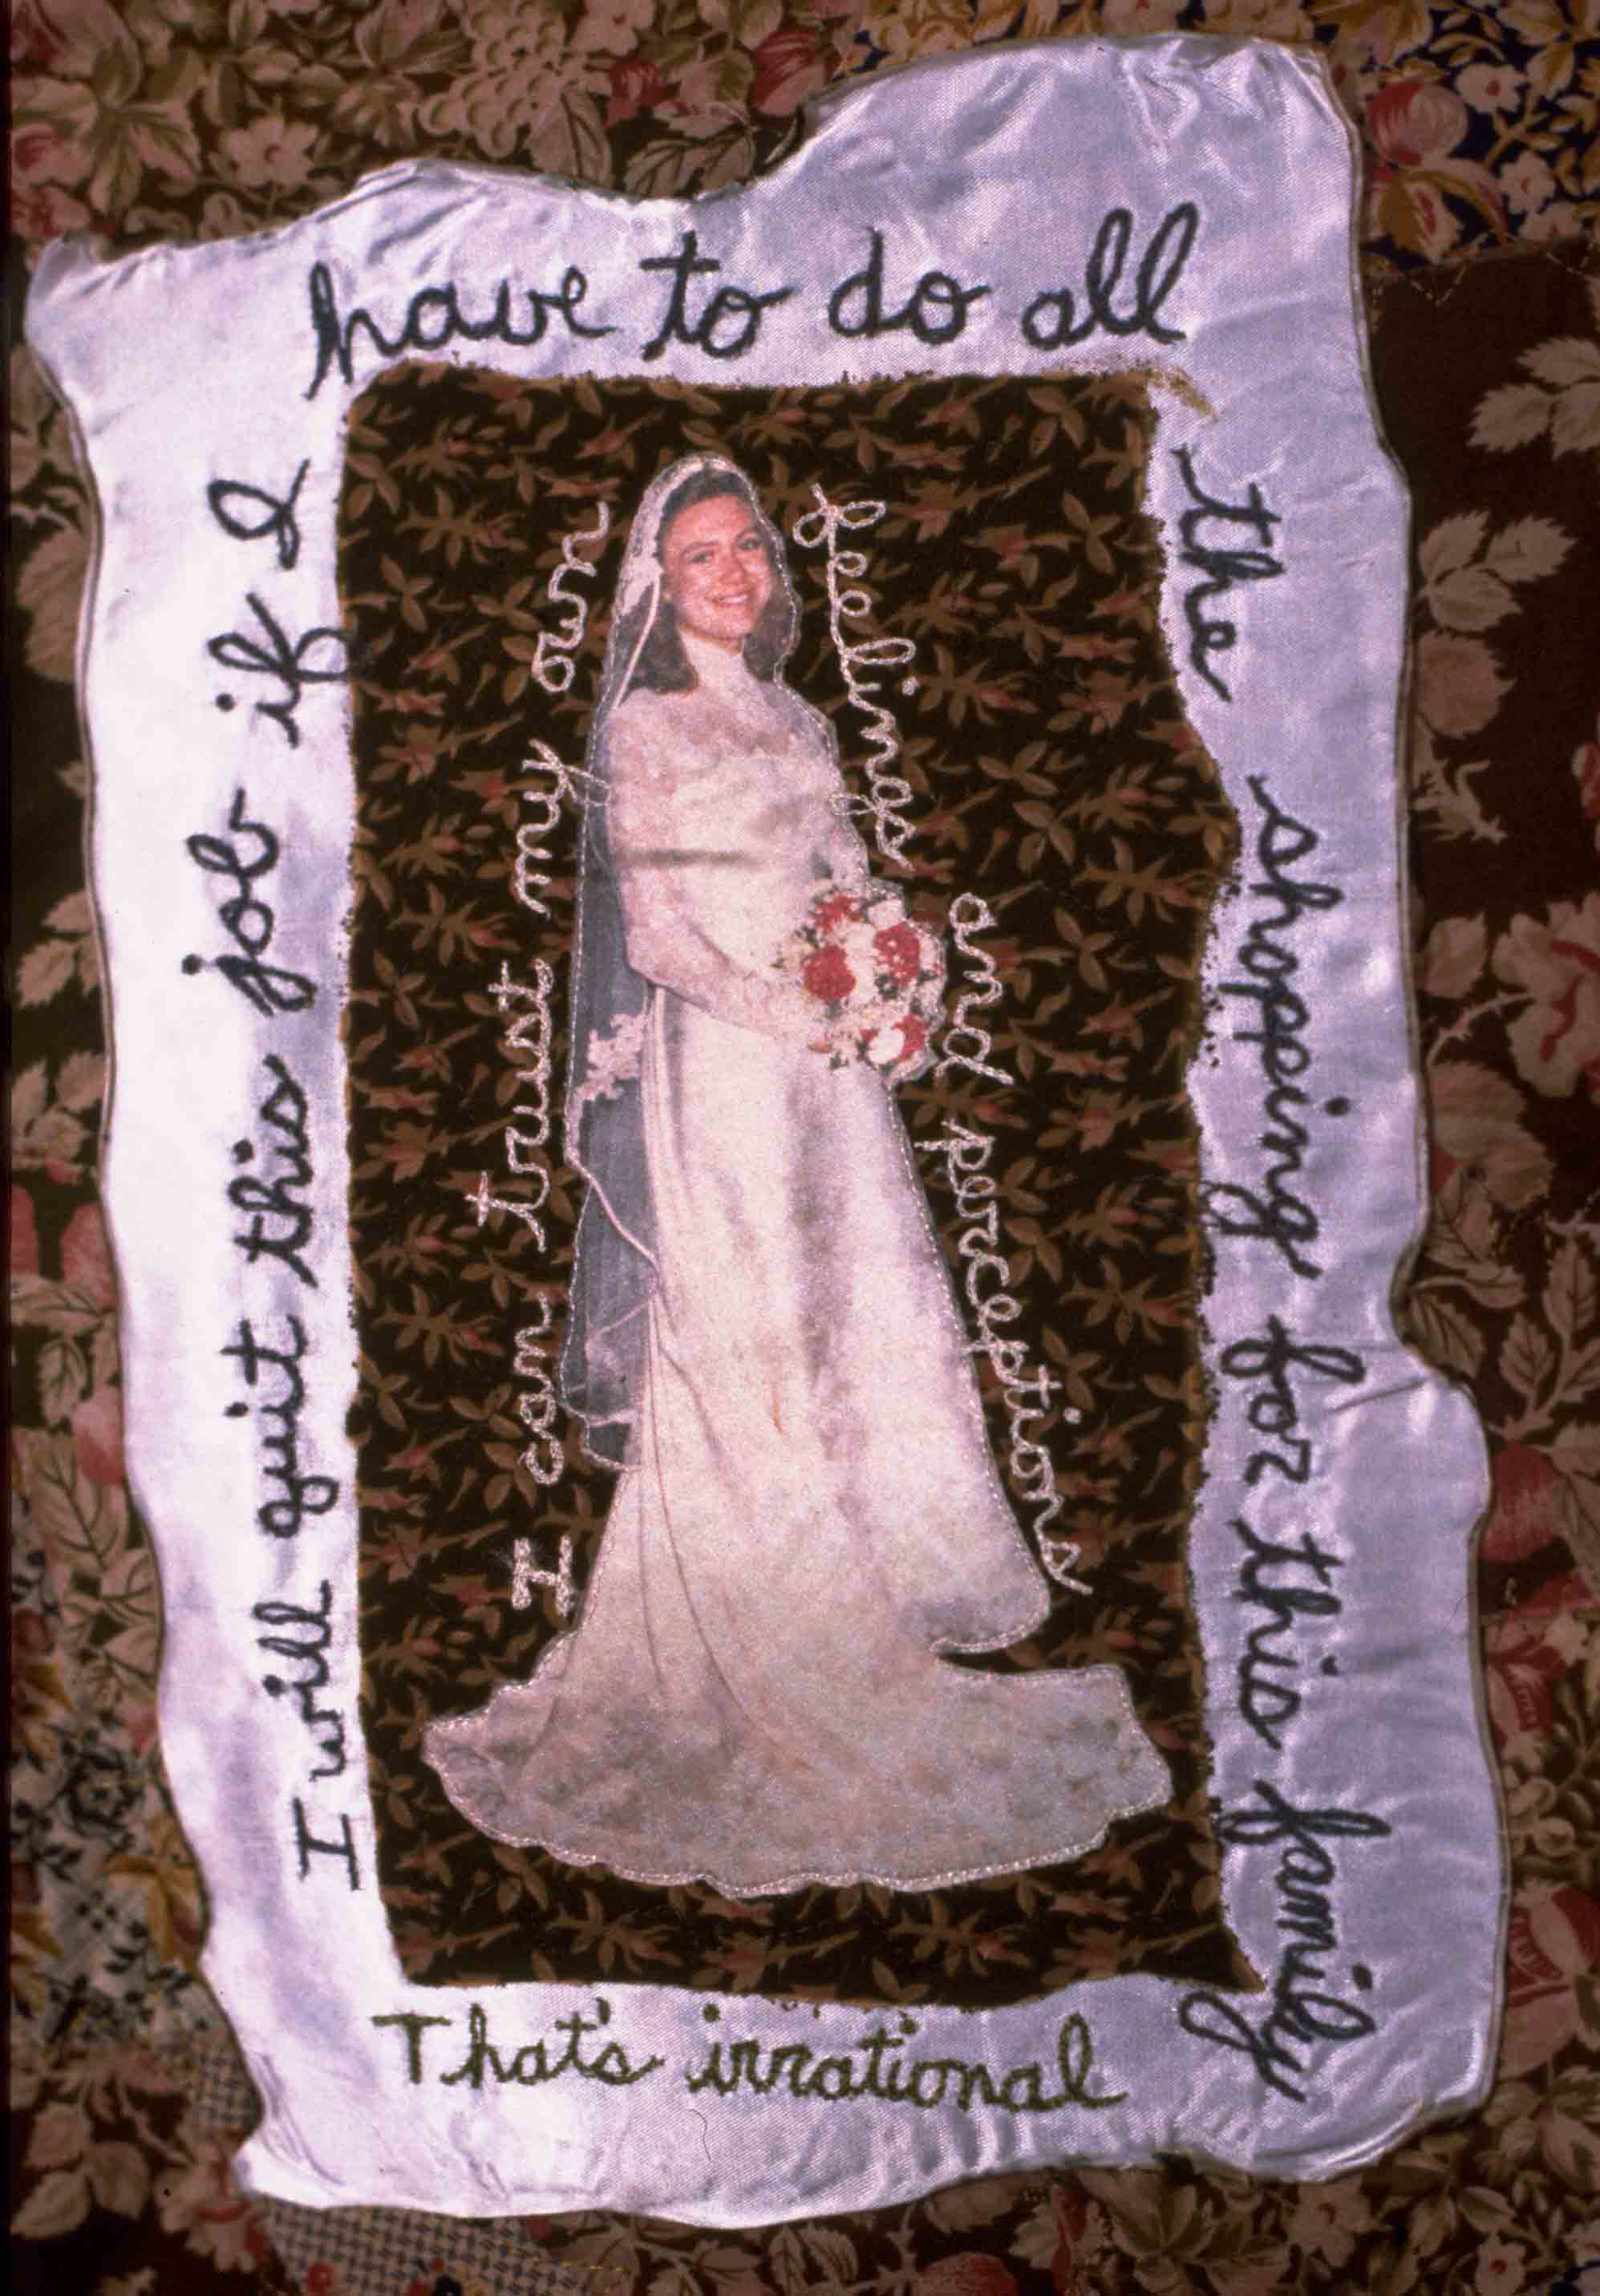 I will quit this job if I
have to do all
the shopping for this family
That's irrational
I can trust my own
feelings
and perceptions